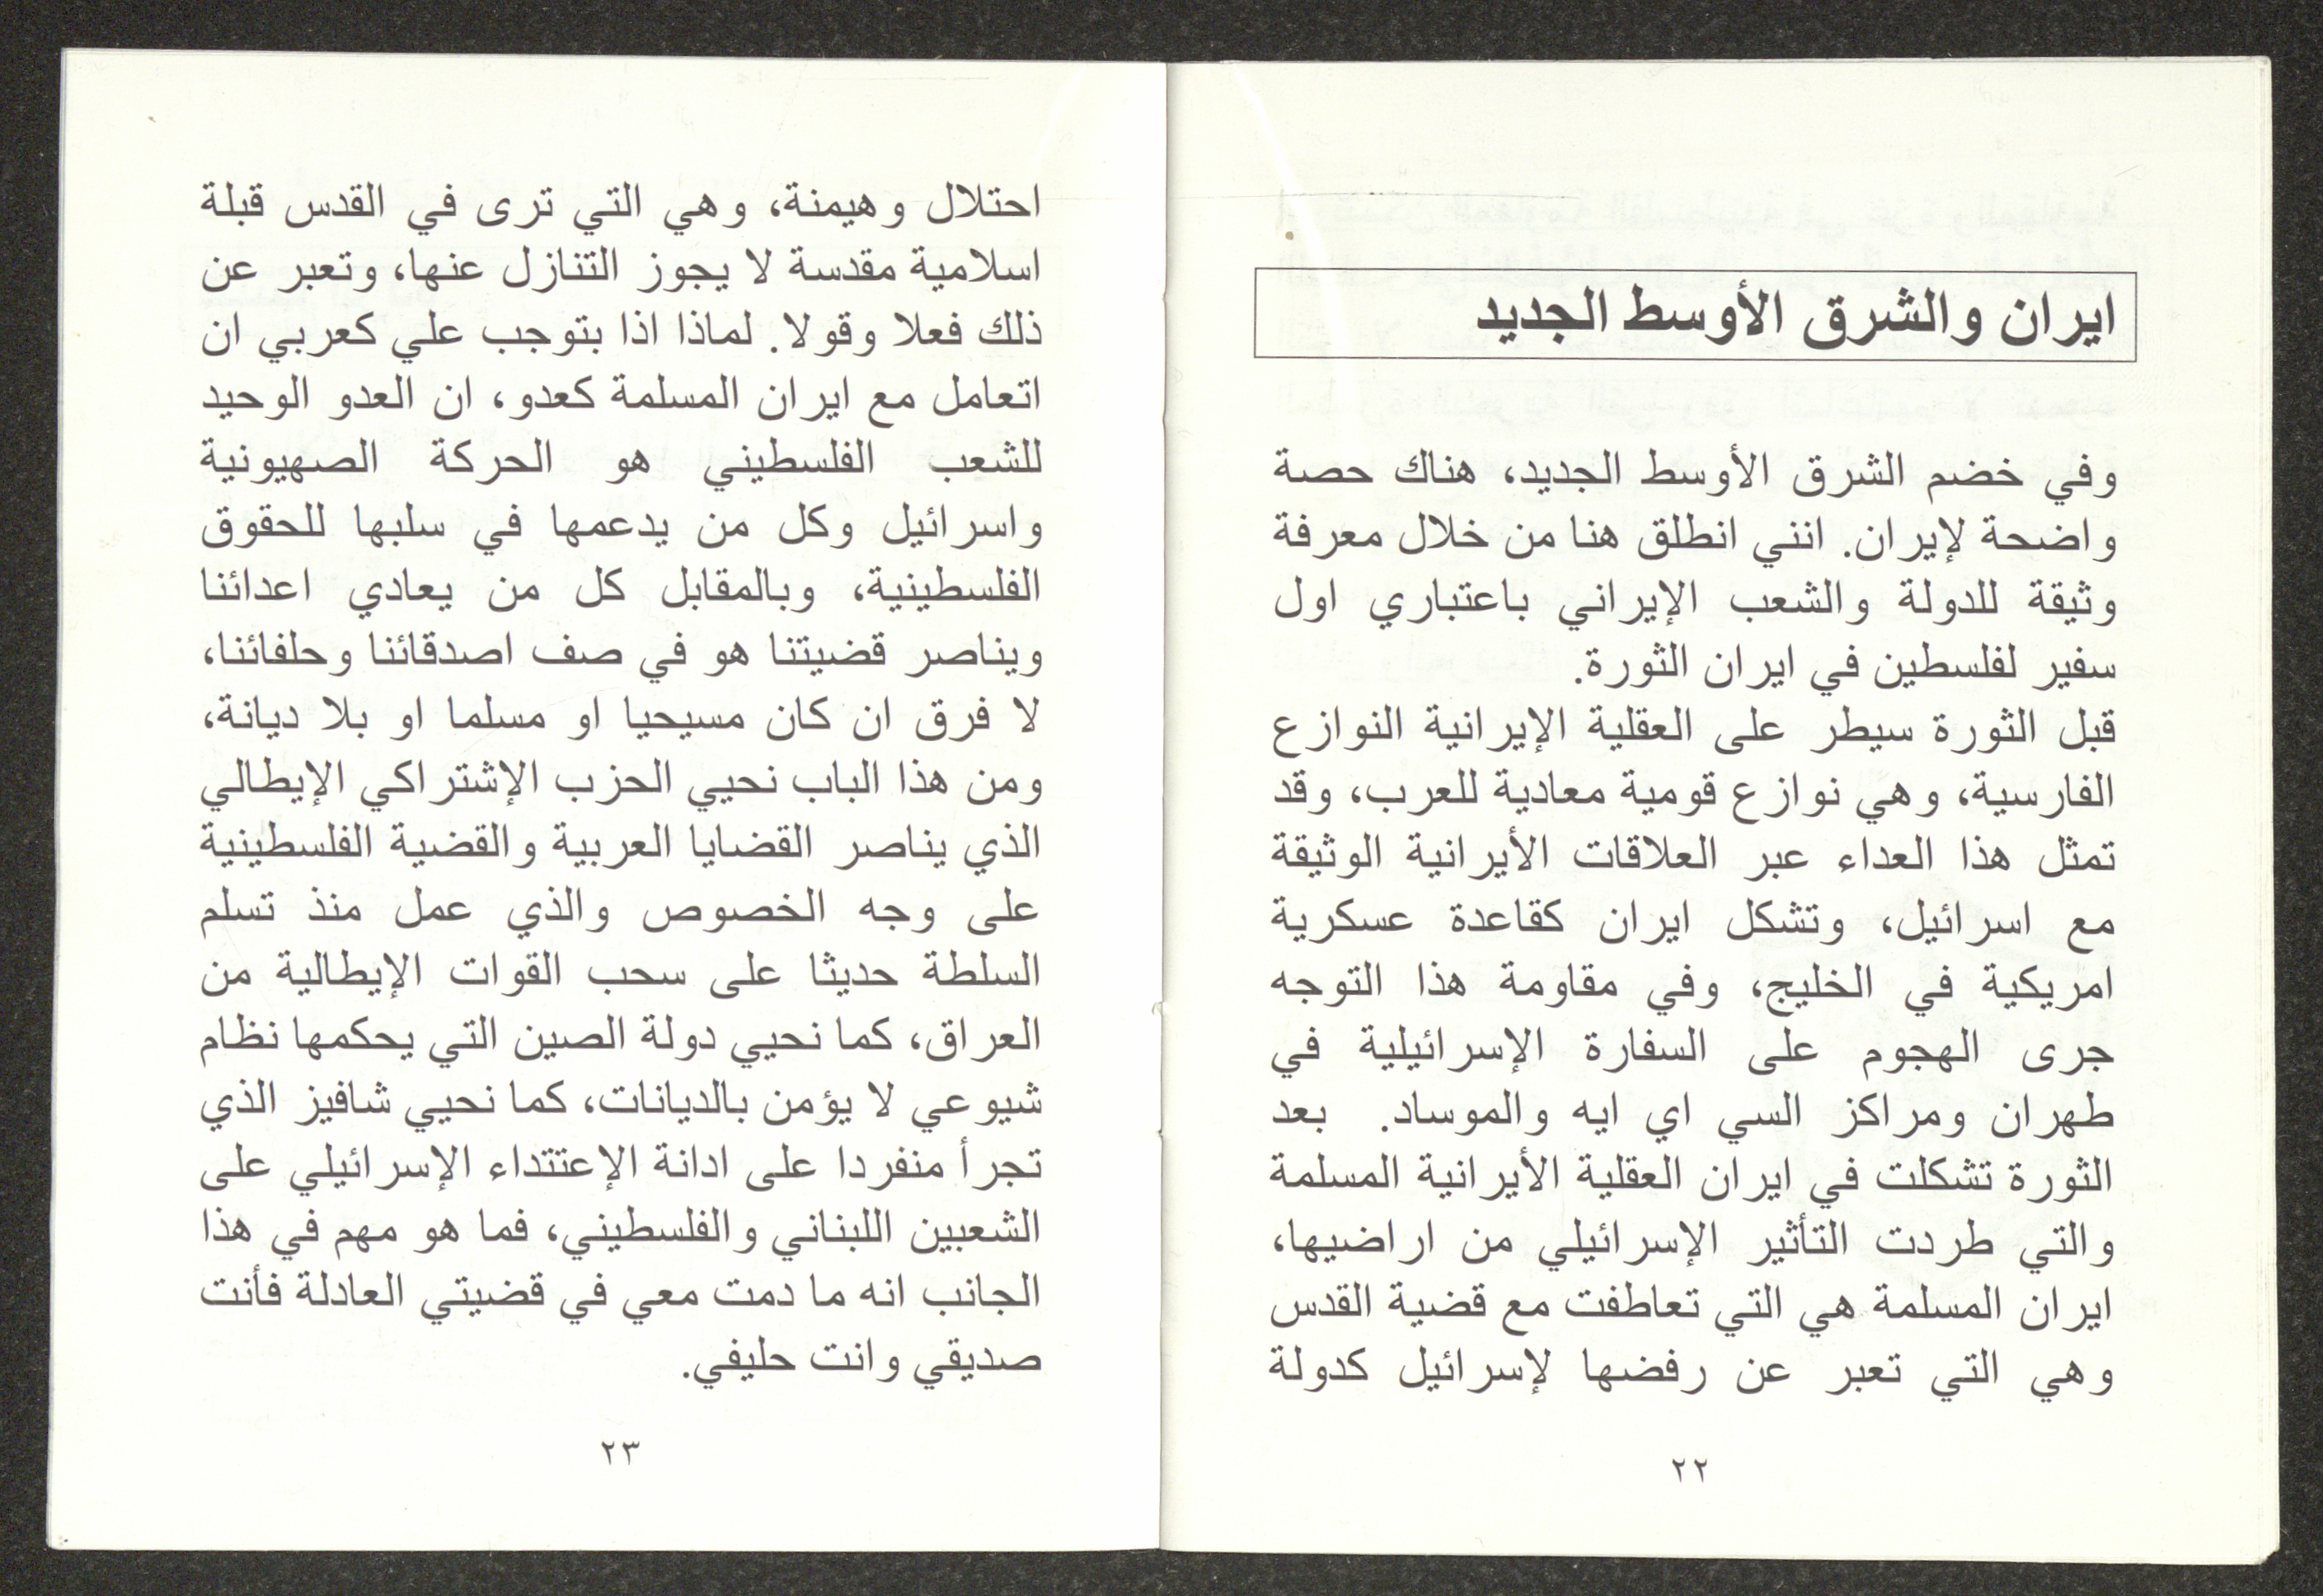 ايران والشرق الأوسط الجديد
وفي خضم الشرق الأوسط الجديد، هناك حصة
واضحة لإيران. انني انطلق هنا من خلال معرفة
وثيقة للدولة والشعب الإيراني باعتباري اول
سفير لفلسطين في ايران الثورة.
قبل الثورة سيطر على العقلية الإيرانية النوازع
الفارسية، وهي نوازع قومية معادية للعرب، وقد
تمثل هذا العداء عبر العلاقات الأيرانية الوثيقة
مع اسرائيل، وتشكل ايران كقاعدة عسكرية
امريكية في الخليج، وفي مقاومة هذا التوجه
جرى الهجوم على السفارة الإسرائيلية في
طهران ومراكز السي اي ايه والموساد. بعد
الثورة تشكلت في ايران العقلية الأيرانية المسلمة
والتي طردت التأثير الإسرائيلي من اراضيها،
ايران المسلمة هي التي تعاطفت مع قضية القدس
وهي التي تعبر عن رفضها لإسرائيل كدولة
٢٢
احتلال وهيمنة، وهي التي ترى في القدس قبلة
اسلامية مقدسة لا يجوز التنازل عنها، وتعبر عن
ذلك فعلا وقولا. لماذا اذا بتوجب علي كعربي ان
اتعامل مع ايران المسلمة كعدو، ان العدو الوحيد
للشعب الفلسطيني هو الحركة الصهيونية
واسرائيل وكل من يدعمها في سلبها للحقوق
الفلسطينية، وبالمقابل كل من يعادي اعدائنا
ويناصر قضيتنا هو في صف اصدقائنا وحلفائنا،
لا فرق ان كان مسيحيا او مسلما او بلا ديانة،
ومن هذا الباب نحيي الحزب الإشتراكي الإيطالي
الذي يناصر القضايا العربية والقضية الفلسطينية
على وجه الخصوص والذي عمل منذ تسلم
السلطة حديثا على سحب القوات الإيطالية من
العراق، كما نحيي دولة الصين التي يحكمها نظام
شيوعي لا يؤمن بالديانات، كما نحيي شافيز الذي
تجرأ منفردا على ادانة الإعتتداء الإسرائيلي على
الشعبين اللبناني والفلسطيني، فما هو مهم في هذا
الجانب انه ما دمت معي في قضيتي العادلة فأنت
صديقي وانت حليفي.
٢٣